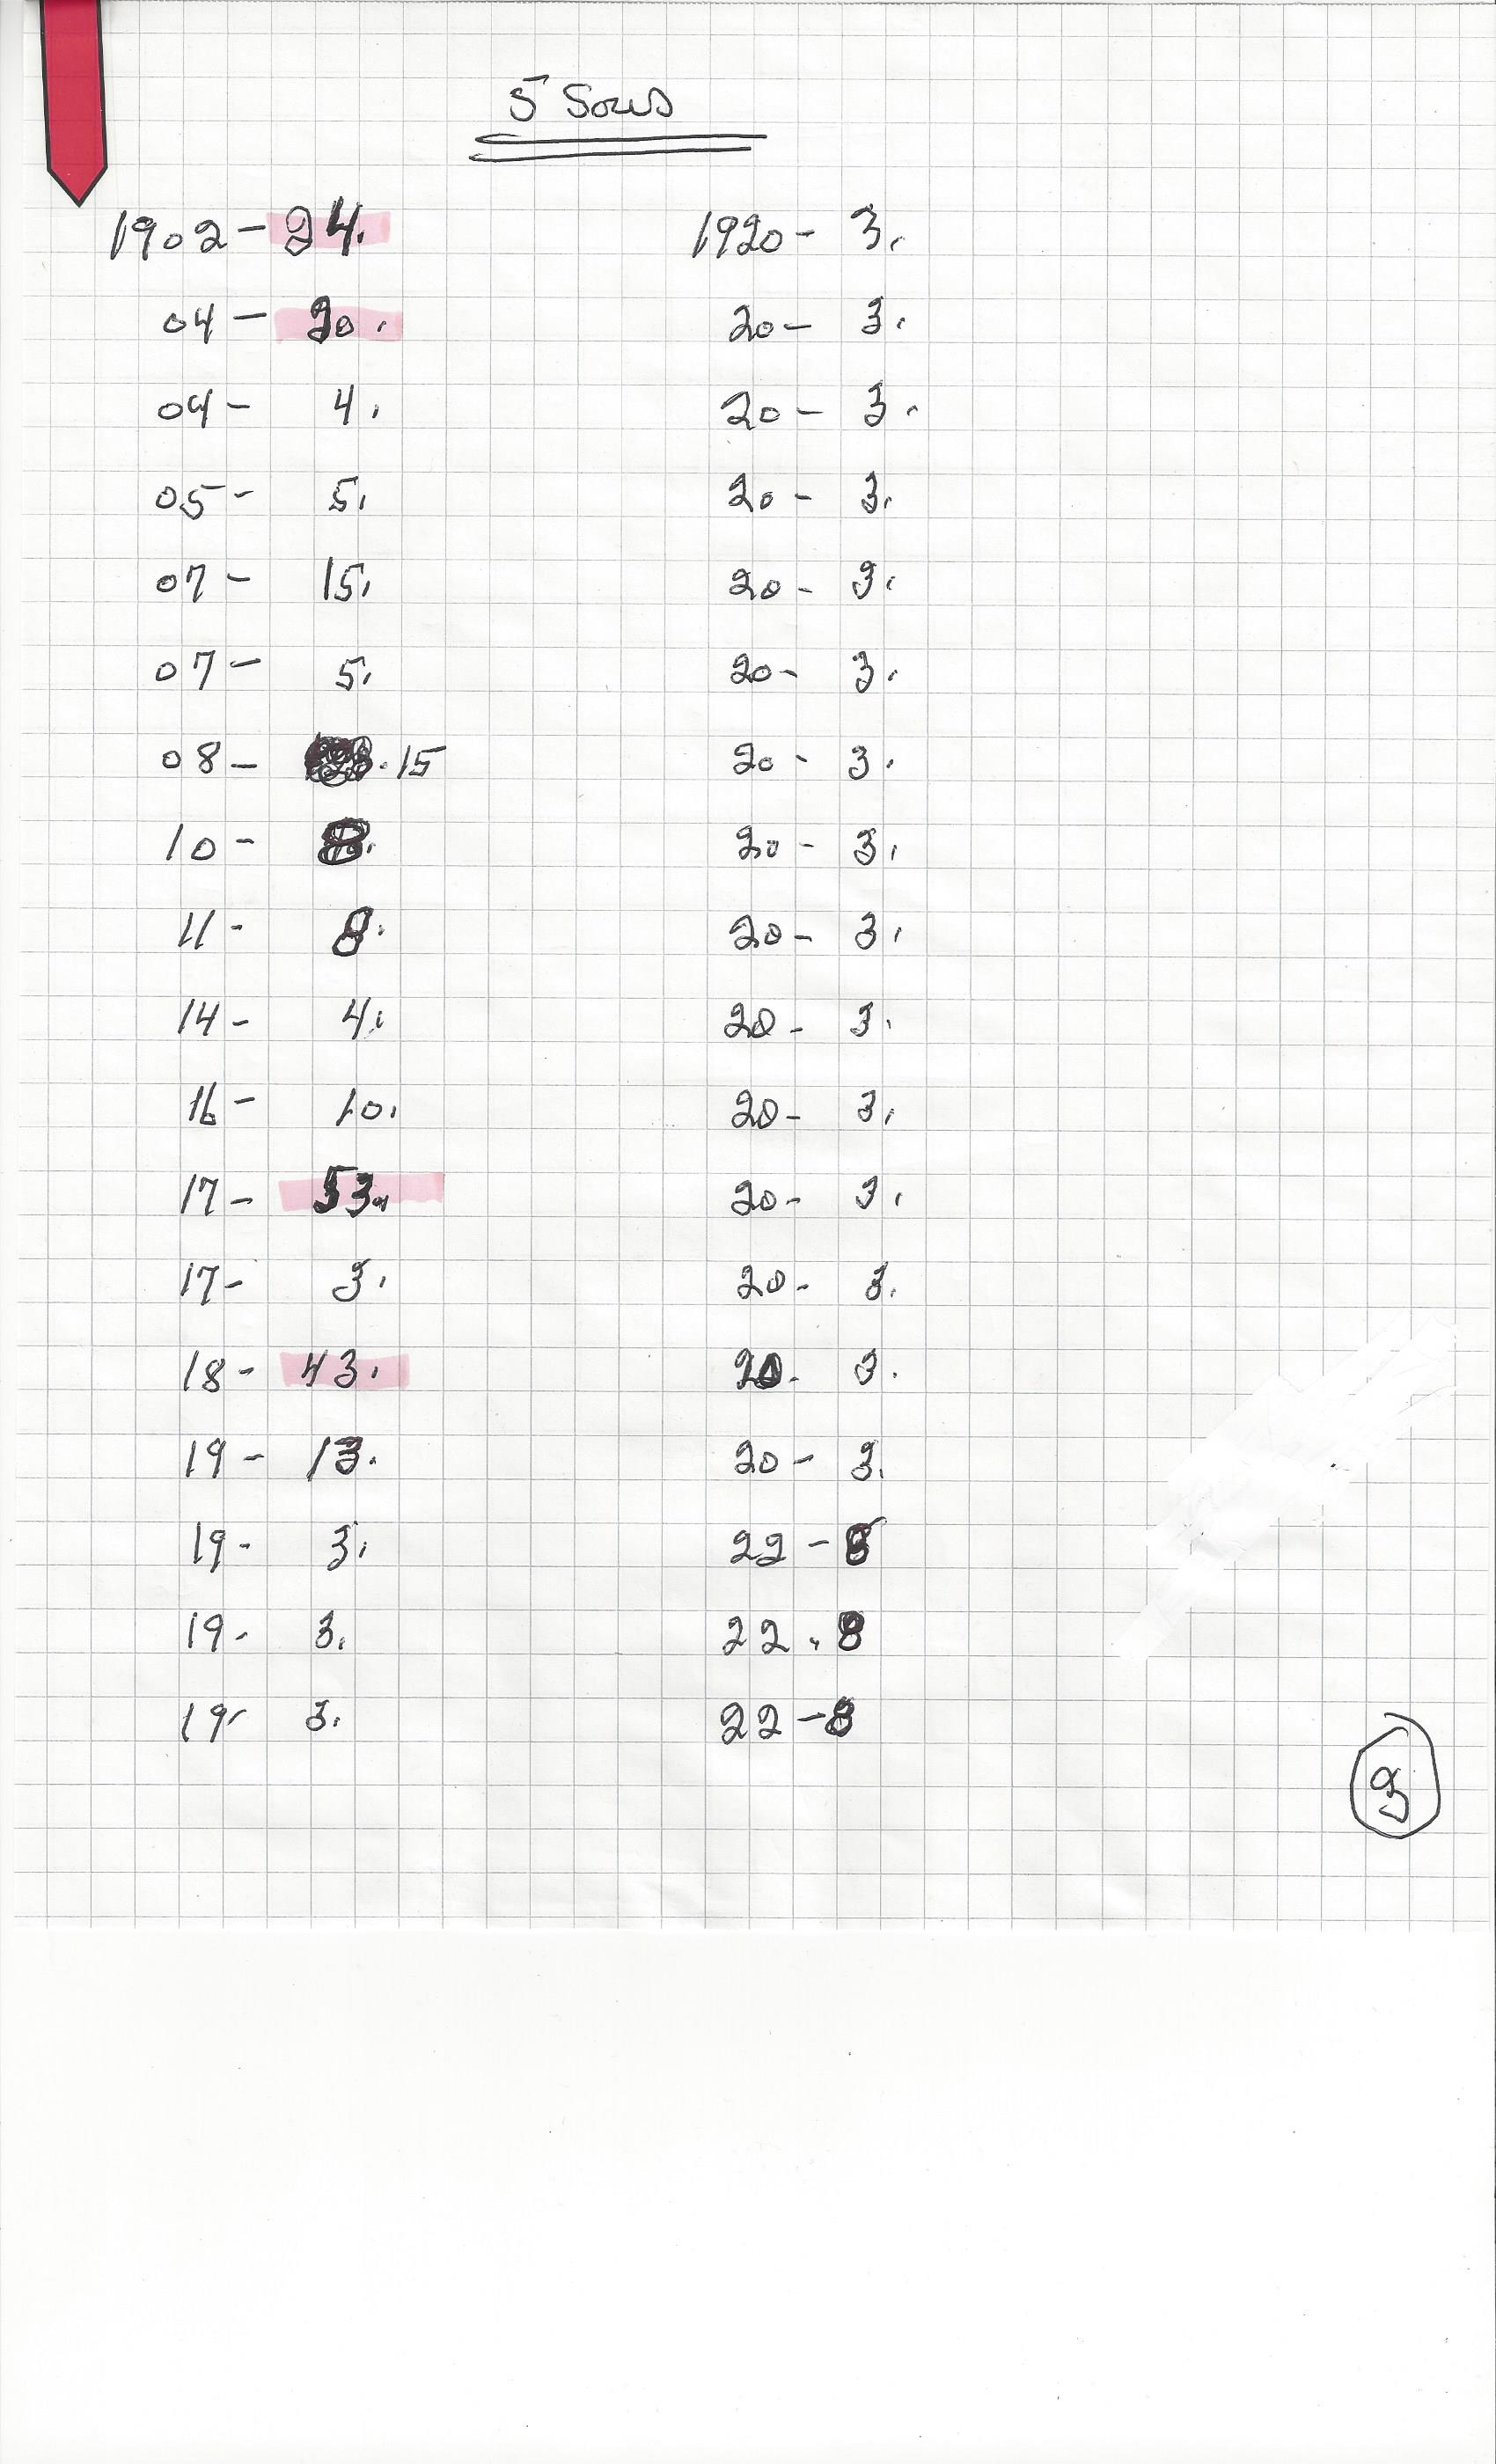 5 Sous
1902 - 24.
04 - 20.
04 - 4.
05 - 5.
07 - 15.
07 - 5.
08 - 15
10 - 8.
11 - 8.
14 - 4.
16 - 10.
17 - 53.
17 - 3.
18 - 43.
19 - 13.
19 - 3.
19 - 3.
19 - 3.
1920 - 3.
20 - 3.
20 - 3.
20 - 3.
20 - 3.
20 - 3.
20 - 3.
20 - 3.
20 - 3.
20 - 3.
20 - 3.
20 - 3.
20 - 3.
20 - 3.
20 - 3.
22 -
22 - 8
22 - 8